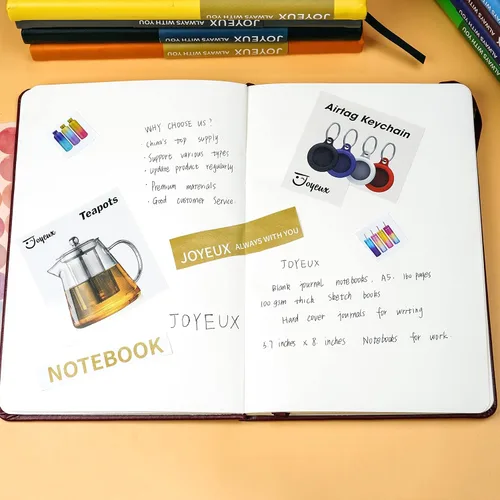 JOYEUX ALWAYS WITH YOU
JOYEUX ALWAYS WITH YOU
JOYEUX ALWAYS WITH YOU
JOYEUX ALWAYS WITH YOU
WHY CHOOSE US?
· China's top supply
· Support various types
· update product regularly
· Premium materials
· Good customer Service.
Joyeux
Teapots
JOYEUX ALWAYS WITH YOU
JOYEUX
NOTEBOOK
Airtag Keychain
Joyeux
JOYEUX
Blank journal notebooks, A5, 160 pages
100 gsm thick sketch books
Hard cover journals for writing
5.7 inches x 8 inches Notebooks for work.